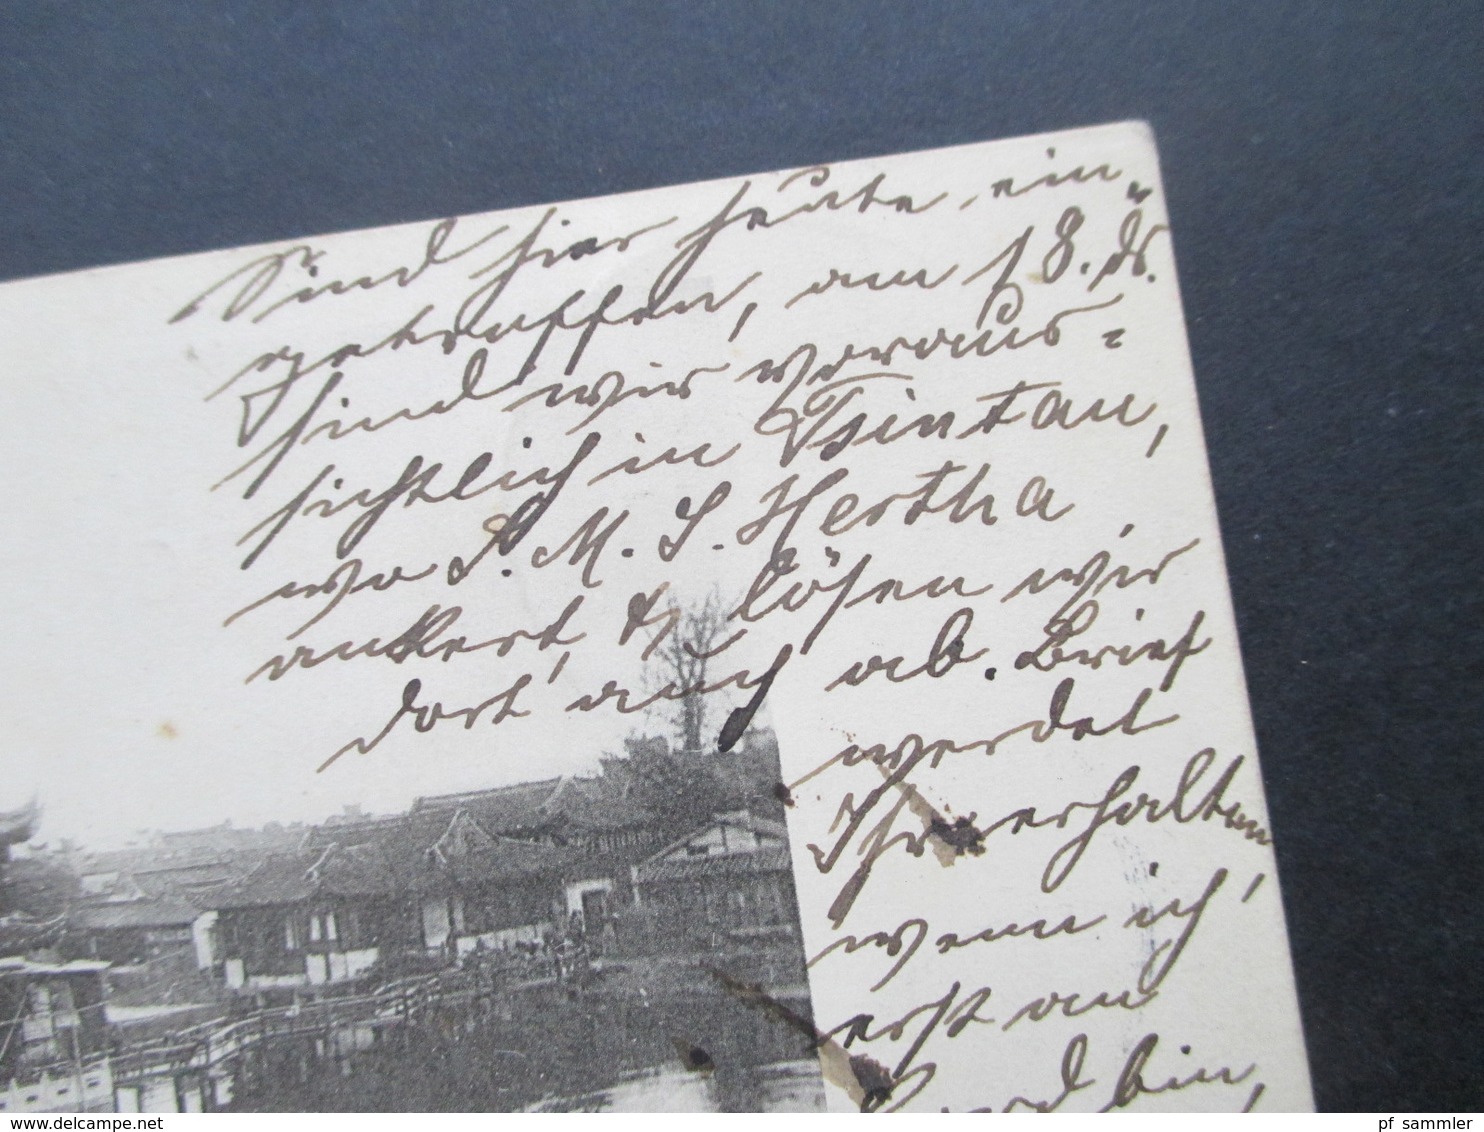 Sind hier heute ein-
getroffen, am 18. ds.
sind wir voraus-
sichtlich in Tsintau,
wo S. M. S. Hertha
ankert, & lösen wir
dort auch ab. Brief
werdet
Ihr erhalten,
wenn ich
erst an
Bord bin,
delcampe.net
pf_sammler